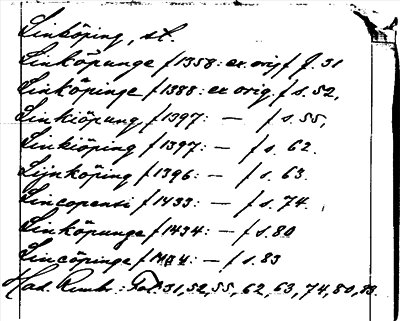 Linköping, st.
Linköpunge /1358: ex. orig/ f. 31
Linköpinge /1388: ex orig. / s. 52,
Linkiöpung /1397: — / s. 55,
Linkiöping /1397: — / s. 62.
Lijnköping /1396: — / s. 63.
Lincopensi /1433: — / s. 74.
Linköpunge /1434: — / s. 80
Lincöpinge /1444: — / s. 83
Had. : Fol. 31, 52, 55, 62, 63, 74, 80, 83.